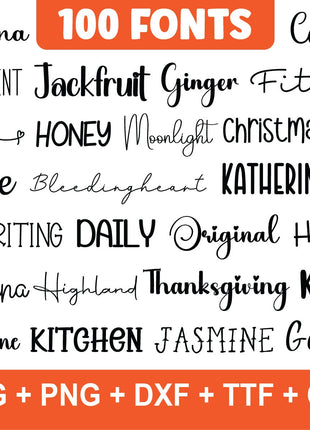 100 FONTS
na
NT Jackfruit Ginger Fit
HONEY Moonlight Christma
e Bleedingheart KATHERIN
RITING DAILY Original H
na Highland Thanksgiving K
ne KITCHEN JASMINE Ge
G + PNG + DXF + TTF +